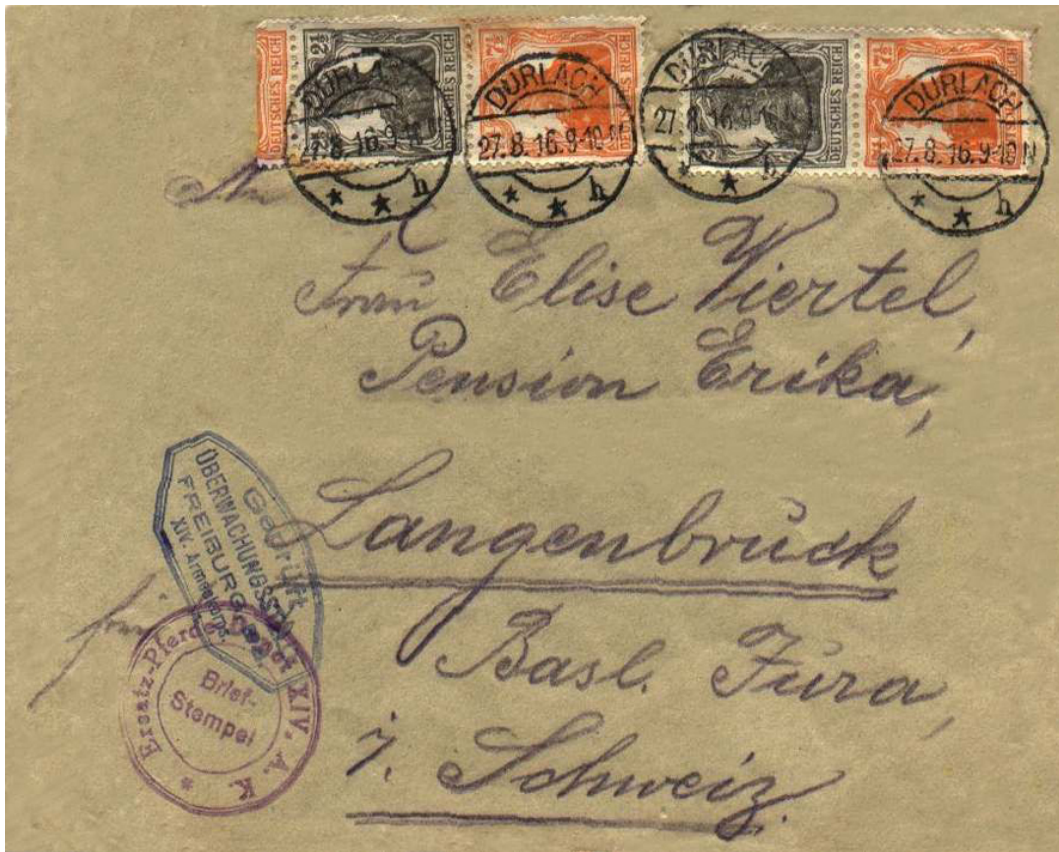 DEUTSCHES REICH
2½ DEUTSCHES REICH
7½ DEUTSCHES REICH
DEUTSCHES REICH
7½ DEUTSCHES REICH
DURLACH
27.8.16.9-10N
* * h
DURLACH
27.8.16.9-10N
* * h
DURLACH
27.8.16.9-10N
* h
DURLACH
27.8.16.9-10N
* * h
An
Frau Elise Viertel,
Pension Erika,
Langenbrück
Basl. Jura,
i. Schweiz.
Geprüft
ÜBERWACHUNGSSTELLE
FREIBURG
XIV. Armeekorps.
* Ersatz-Pferde-Depot XIV. A. K
Brief-
Stempel